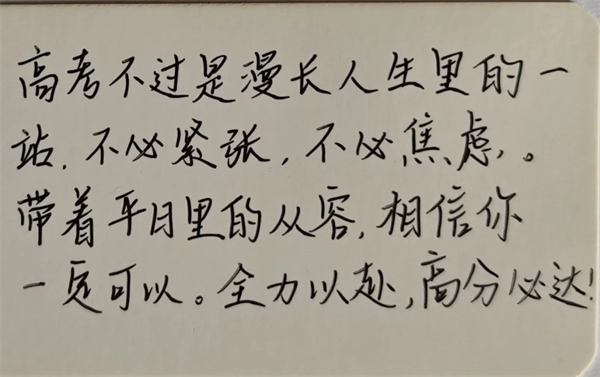 高考不过是漫长人生里的一
站，不必紧张，不必焦虑，。
带着平日里的从容，相信你
一定可以。全力以赴，高分必达！